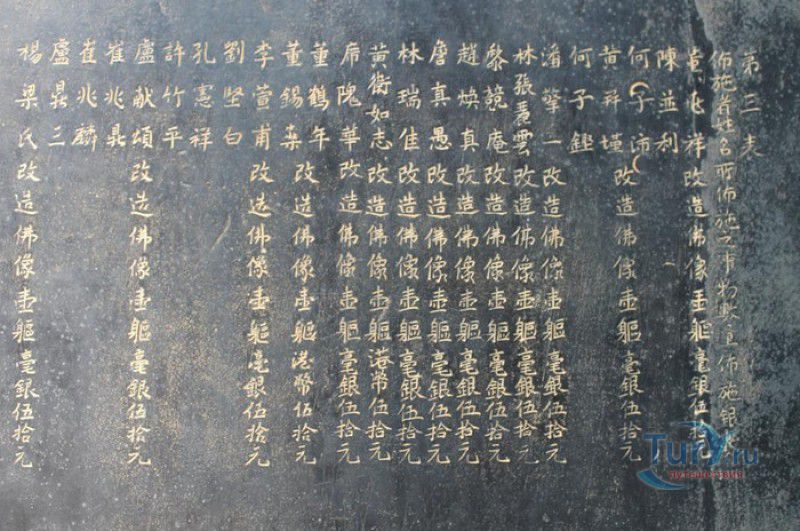 第三表
佈施者姓名所佈施之事物與宣佈施銀
袁兆祥改造佛像壹軀毫銀伍拾元
陳並利
何子沛
黄祥瑾改造佛像壹軀毫銀伍拾元
何子鏗
一改造佛像壹軀毫銀伍拾元
林張雲改造佛像壹軀毫銀伍拾元
黎競庵改造佛像壹軀毫銀伍拾元
趙煥真改造佛像壹軀毫銀伍拾元
唐真愚改造佛像壹軀毫銀伍拾元
林瑞佳改造佛像壹軀毫銀伍拾元
黄衡如志改造佛像壹軀港幣伍拾元
席隗華改造佛像壹軀毫銀伍拾元
董鶴年
董錫桒改造佛像壹軀港幣伍拾元
李萱甫改造佛像壹軀毫銀伍拾元
劉堅白
孔憲祥
許竹平
盧献頌改造佛像壹軀毫銀伍拾元
崔兆鼎
崔兆麟
盧鼎三
楊梁氏改造佛像壹軀毫銀伍拾元
Tury.ru
путешествия